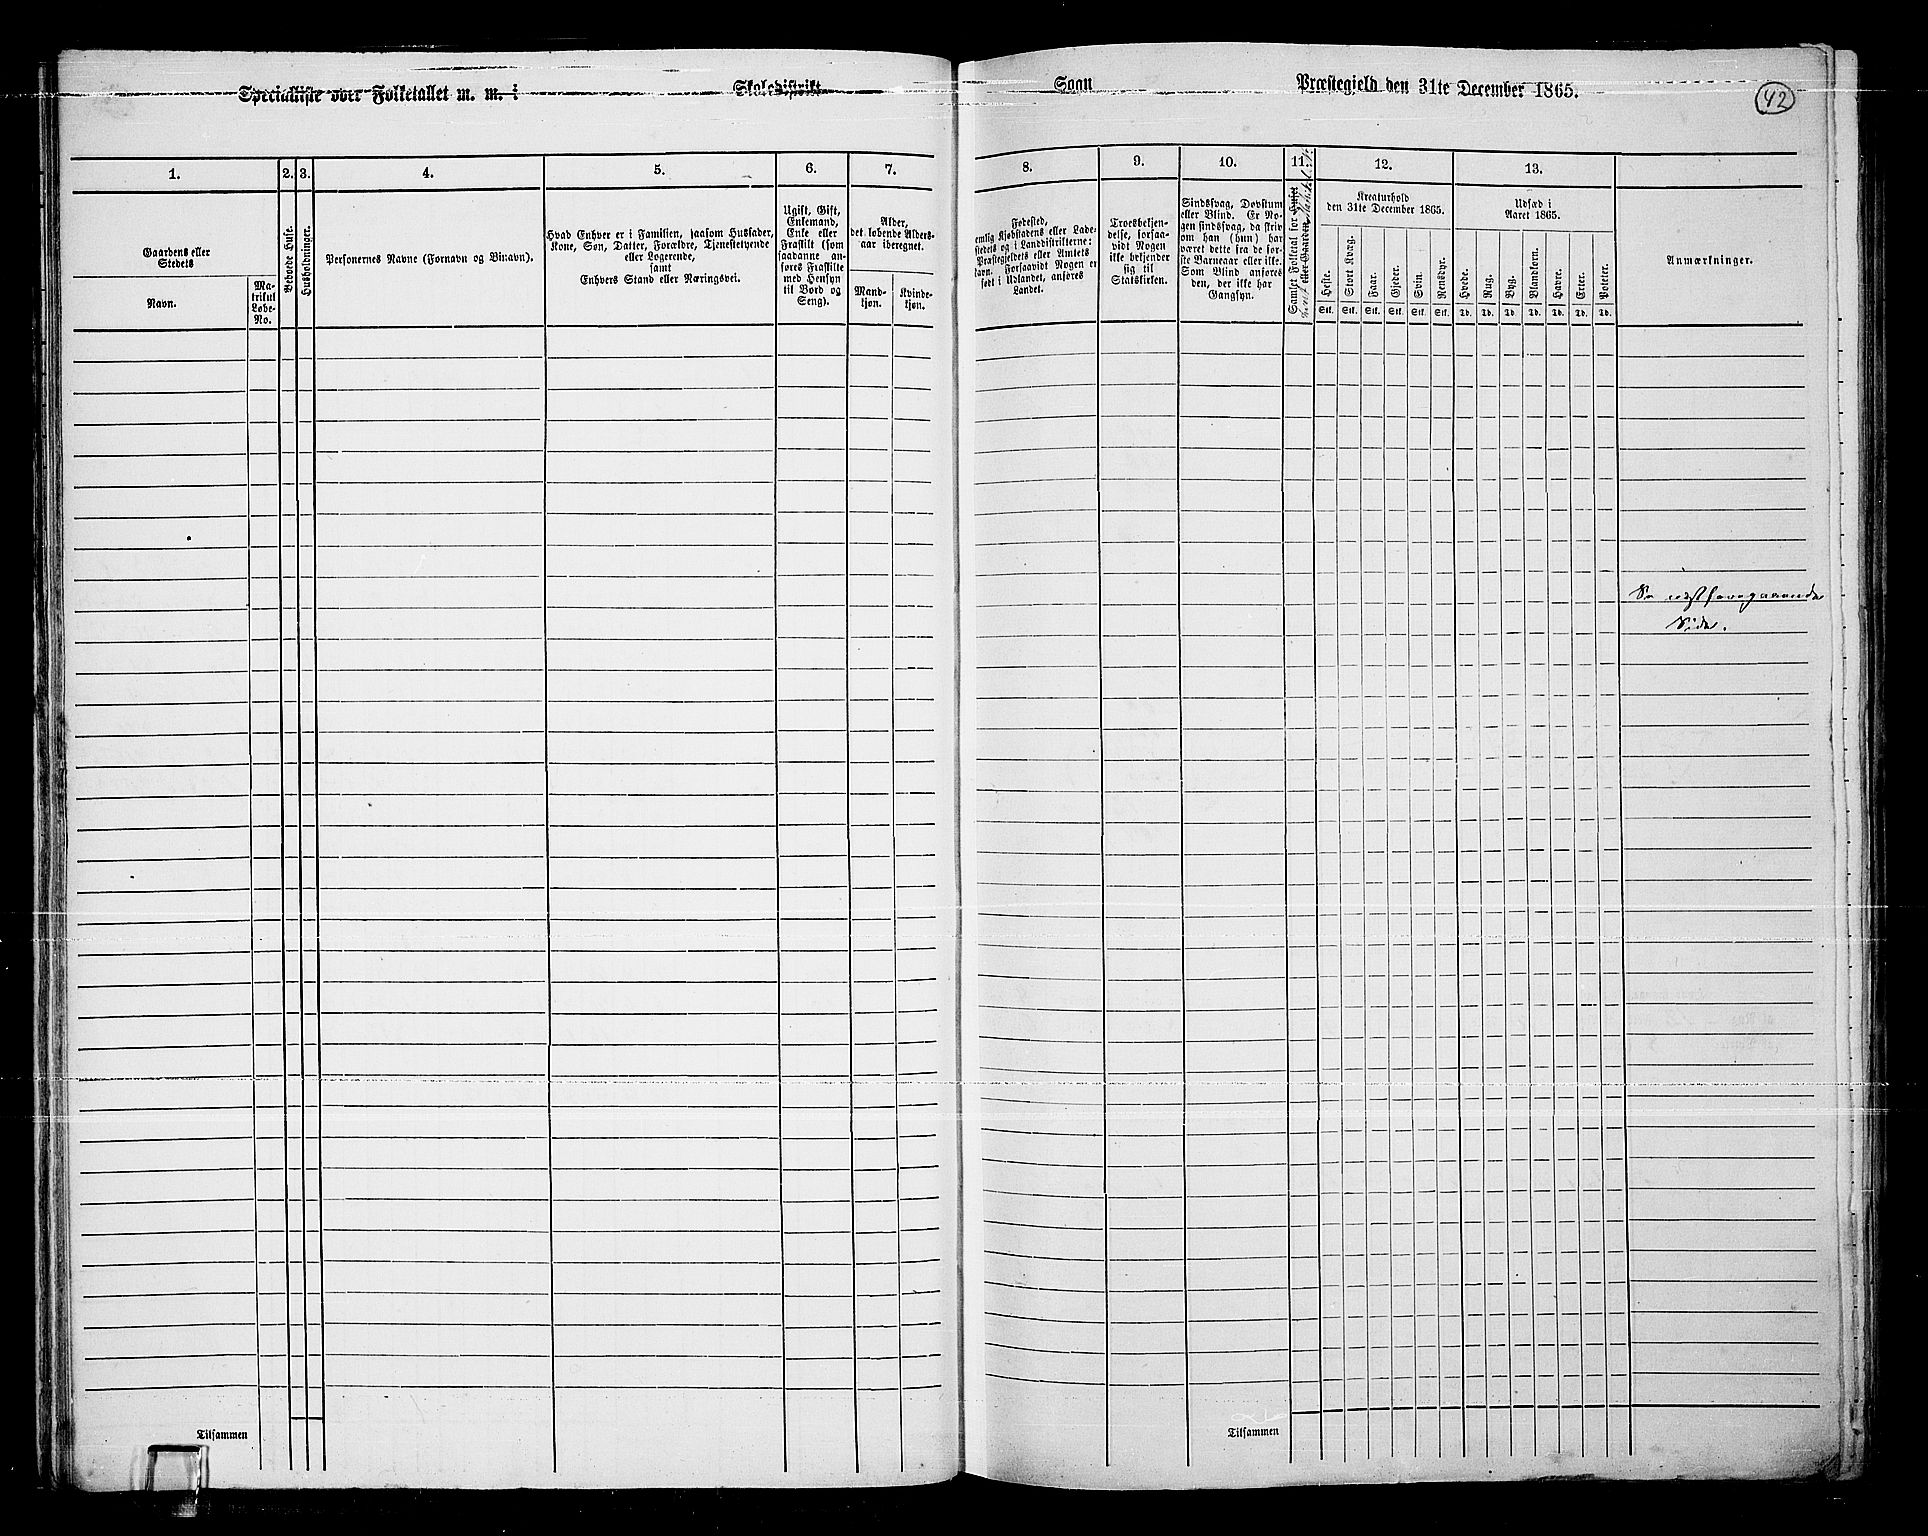 Specialliste over Folketallet m. m. i Skoledistrikt Sogn Præstegjeld den 31te December 1865.
42
1. 2. 3. 4. 5. 6. 7. 8. 9. 10. 11. 12. 13.
Gaardens eller
Stedets
Navn.
Ma-
trikul
Løbe-
No.
Beboede Huse.
Husholdninger.
Personernes Navne (Fornavn og Binavn).
Hvad Enhver er i Familien, saasom Husfader,
Kone, Søn, Datter, Forældre, Tjenestetyende
eller Logerende,
samt
Enhvers Stand eller Næringsvei.
Ugift, Gift,
Enkemand,
Enke eller
Fraskilt (som
saadanne an-
føres Fraskilte
med Hensyn
til Bord og
Seng).
Alder,
det løbende Alders-
aar iberegnet.
Mand-
kjøn.
Kvinde-
kjøn.
Fødested,
emlig Kjøbstadens eller Lade-
stedets og i Landdistrikterne:
Præstegjeldets eller Amtets
avn. Forsaavidt Nogen er
født i Udlandet, anføres
Landet.
Troesbekjen-
delse, forsaa-
vidt Nogen
ikke bekjender
sig til
Statskirken.
Sindssvag, Døvstum
eller Blind. Er No-
gen sindssvag, da skriv
om han (hun) har
været dette fra de før-
ste Barneaar eller ikke.
Som Blind anføres
den, der ikke har
Gangsyn.
Samlet Folketal for Huset
eller Gaarden
Kreaturhold
den 31te December 1865.
Heste.
Stort Kvæg.
Faar.
Gjeder.
Svin.
Rensdyr.
Stk. Stk. Stk. Stk. Stk. Stk.
Udsæd i
Aaret 1865.
Hvede.
Rug.
Byg.
Blandkorn.
Havre.
Erter.
Poteter.
Td. Td. Td. Td. Td. Td. Td.
Anmærkninger.
Se næstforegaaende
Side.
Tilsammen
Tilsammen